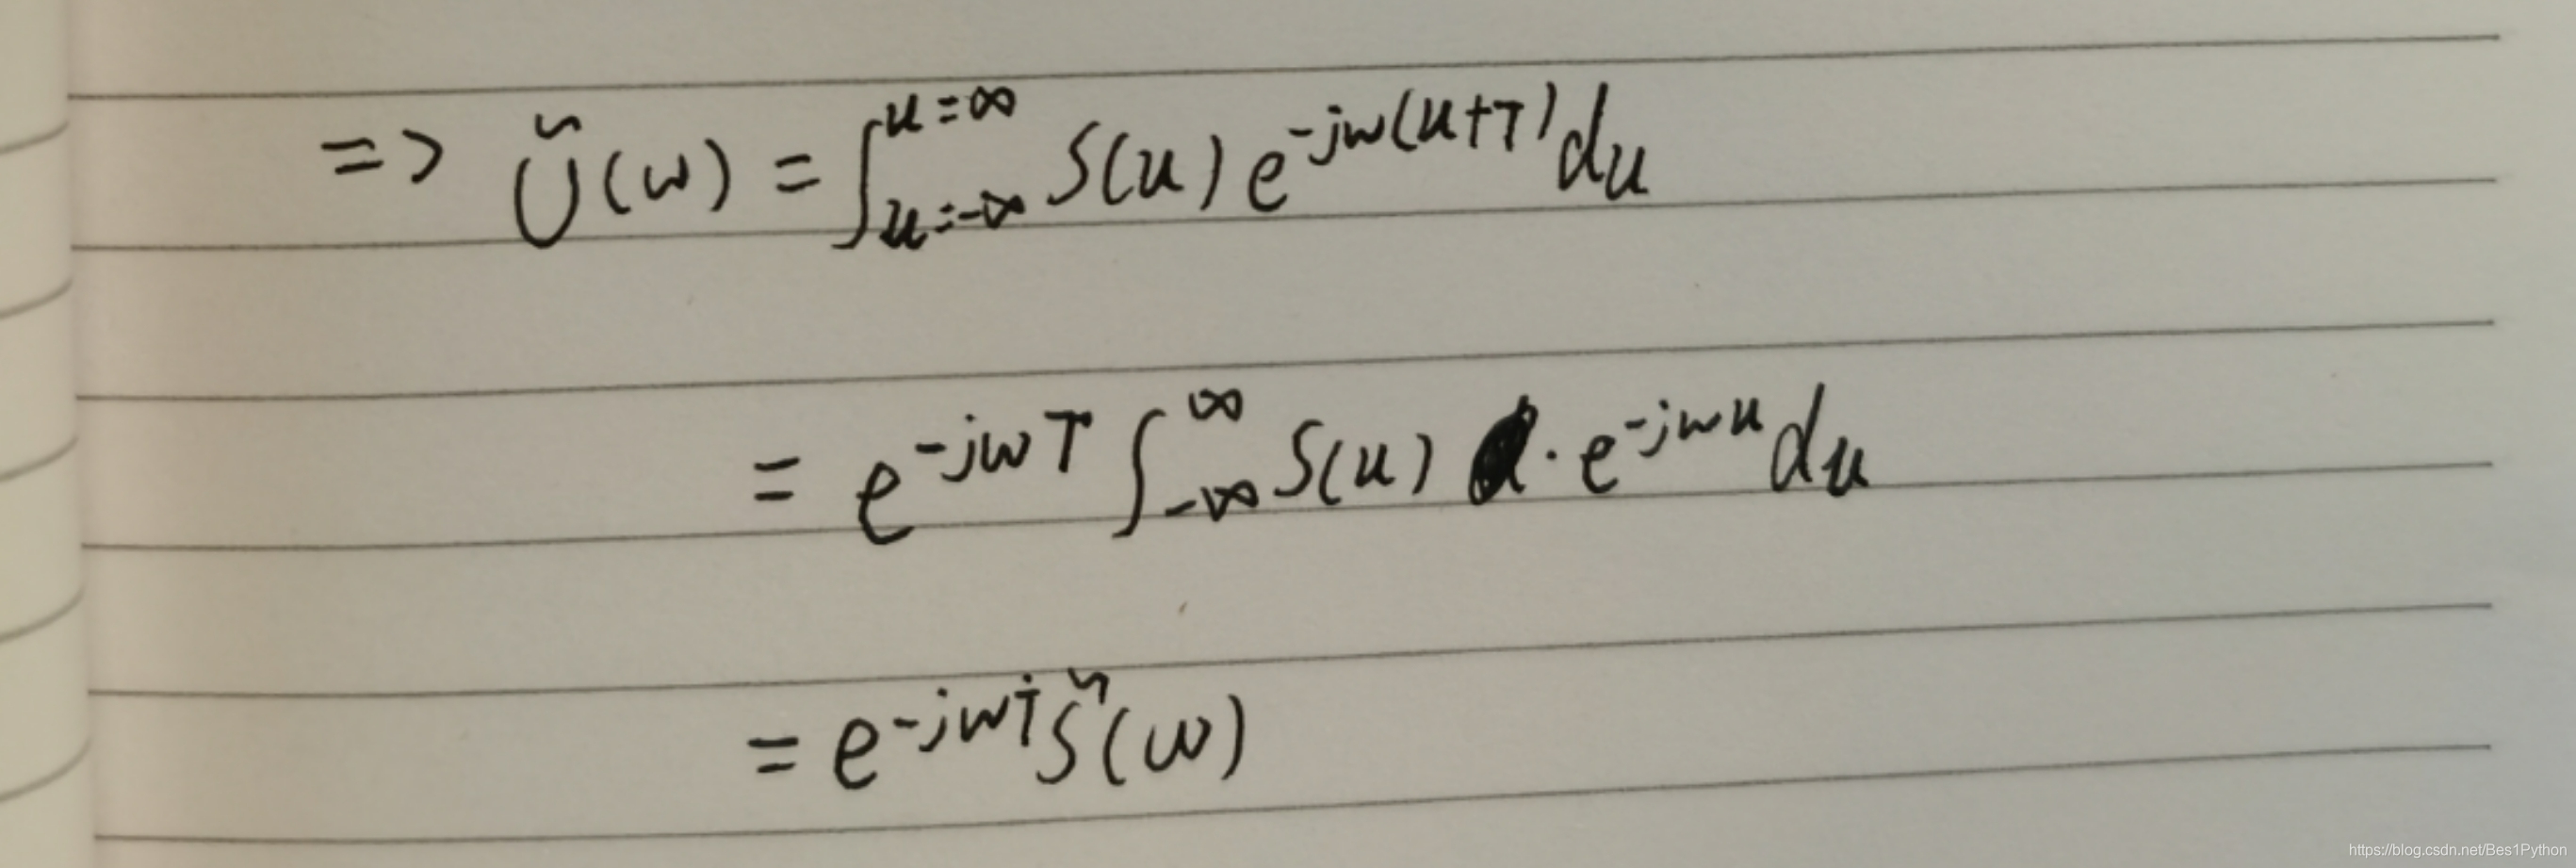 => Ũ(w) = ∫_{u=-∞}^{u=∞} S(u) e^{-jw(u+T)} du
= e^{-jwT} ∫_{-∞}^{∞} S(u) · e^{-jwu} du
= e^{-jwT} S̃(w)
https://blog.csdn.net/Bes1Python